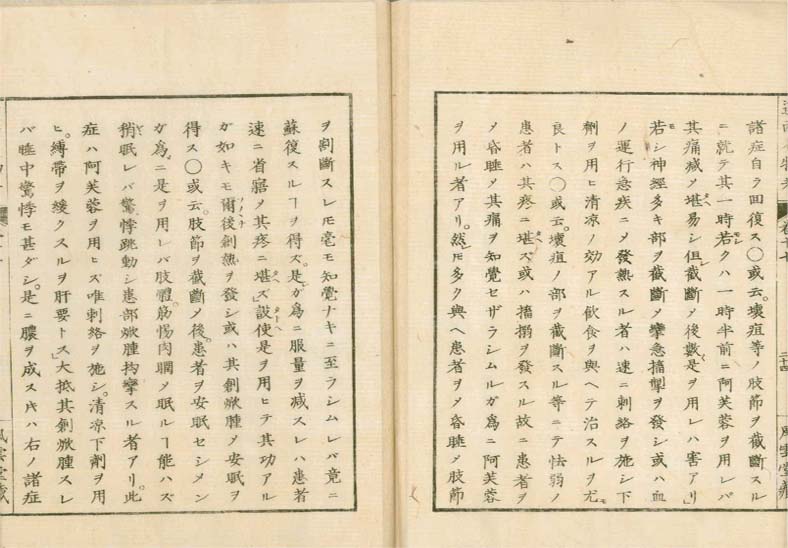 諸症自ラ回復ス〇或云。壊疽等ノ肢節ヲ截斷スル
ニ就テ其一時若クハ一時半前ニ阿芙蓉ヲ用レバ
其痛減〆堪易シ但截斷〆後數是ヲ用レハ害アリ」
若シ神經多キ部ヲ截斷〆攣急搐掣ヲ發シ或ハ血
ノ運行急疾ニ〆發熱スル者ハ速ニ刺絡ヲ施シ下
劑ヲ用ヒ清凉ノ効アル飲食ヲ與ヘテ治スルヲ尤
良トス〇或云。壊疽ノ部ヲ截斷スル等ニテ怯弱ノ
患者ハ其疼ニ堪ズ或ハ搐搦ヲ發スル故ニ患者ヲ
〆昏睡〆其痛ヲ知覺セザラシムルガ為ニ阿芙蓉
ヲ用ル者アリ。然𪜈多ク與ヘ患者ヲ〆昏睡〆肢節
二十四
風雲堂藏
ヲ割斷スレ𪜈毫モ知覺ナキニ至ラシムレバ竟ニ
蘇復スルヿヲ得ズ。是ガ為ニ服量ヲ減スレハ患者
速ニ省寤〆其疼ニ堪ズ」設使是ヲ用ヒテ其功アル
ガ如キモ爾後創熱ヲ發シ或ハ其創焮腫〆安眠ヲ
得ス〇或云。肢節ヲ截斷〆後。患者ヲ安眠セシメン
ガ為ニ是ヲ用レバ肢體。筋惕肉瞤〆眠ルヿ能ハズ
稍眠レバ驚悸跳動シ患部焮腫拘攣スル者アリ。此
症ハ阿芙蓉ヲ用ヒズ唯刺絡ヲ施シ。清凉下劑ヲ用
ヒ。縛帶ヲ緩クスルヲ肝要トス」大抵其創焮腫スレ
バ睡中驚悸モ甚ダシ。是ニ膿ヲ成ス𪜈ハ右ノ諸症
風雲堂藏